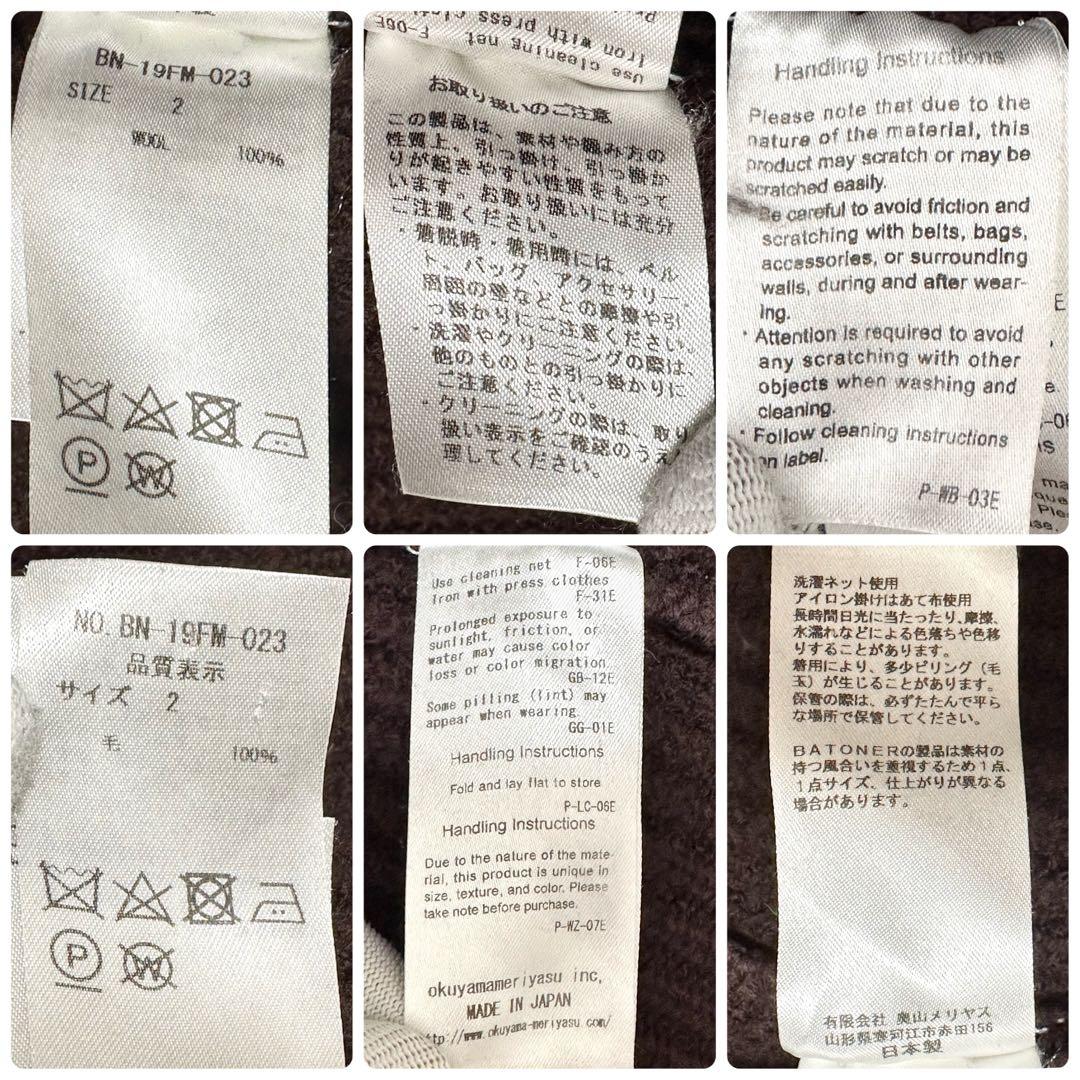 BN-19FM-023
SIZE 2
WOOL 100%
P
W
F-06E
Use cleaning net
Iron with press clothes
お取り扱いのご注意
この製品は、素材や編み方の
性質上、引っ掛け、引っ掛か
りが起きやすい性質をもって
います。お取り扱いには充分
ご注意ください。
・着脱時・着用時には、ベル
ト、バッグ、アクセサリー、
周囲の壁などとの摩擦や引
っ掛かりにご注意ください。
・洗濯やクリーニングの際は、
他のものとの引っ掛かりに
ご注意ください。
・クリーニングの際は、取り
扱い表示をご確認のうえ
理してください。
Handling Instructions
Please note that due to the
nature of the material, this
product may scratch or may be
scratched easily.
Be careful to avoid friction and
scratching with belts, bags,
accessories, or surrounding
walls, during and after wear-
ing.
・Attention is required to avoid
any scratching with other
objects when washing and
cleaning.
・Follow cleaning instructions
on label.
P-WB-03E
NO. BN-19FM-023
品質表示
サイズ 2
毛 100%
P
W
Use cleaning net F-06E
Iron with press clothes
F-31E
Prolonged exposure to
sunlight, friction, or
water may cause color
loss or color migration.
GB-12E
Some pilling (lint) may
appear when wearing.
GG-01E
Handling Instructions
Fold and lay flat to store
P-LC-06E
Handling Instructions
Due to the nature of the mate-
rial, this product is unique in
size, texture, and color. Please
take note before purchase.
P-WZ-07E
okuyamameriyasu inc,
MADE IN JAPAN
ttp://www.okuyama-meriyasu.com/
洗濯ネット使用
アイロン掛けはあて布使用
長時間日光に当たったり、摩擦、
水濡れなどによる色落ちや色移
りすることがあります。
着用により、多少ピリング（毛
玉）が生じることがあります。
保管の際は、必ずたたんで平ら
な場所で保管してください。
BATONERの製品は素材の
持つ風合いを重視するため1点、
1点サイズ、仕上がりが異なる
場合があります。
有限会社 奥山メリヤス
山形県寒河江市赤田156
日本製